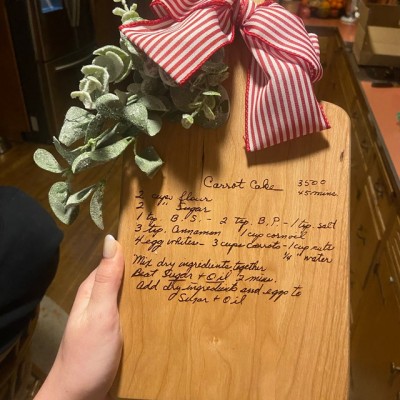 Carrot Cake 350°
45 mins
2 cups flour
2 " Sugar
1 tsp. B.S. - 2 tsp. B.P. - 1 tsp. salt
3 tsp. Cinnamon 1 cup corn oil
4 egg whites - 3 cups Carrots - 1 cup nuts
1/4 " water
Mix dry ingredients together
Beat Sugar + Oil 2 mins.
Add dry ingredients and eggs to
Sugar + Oil